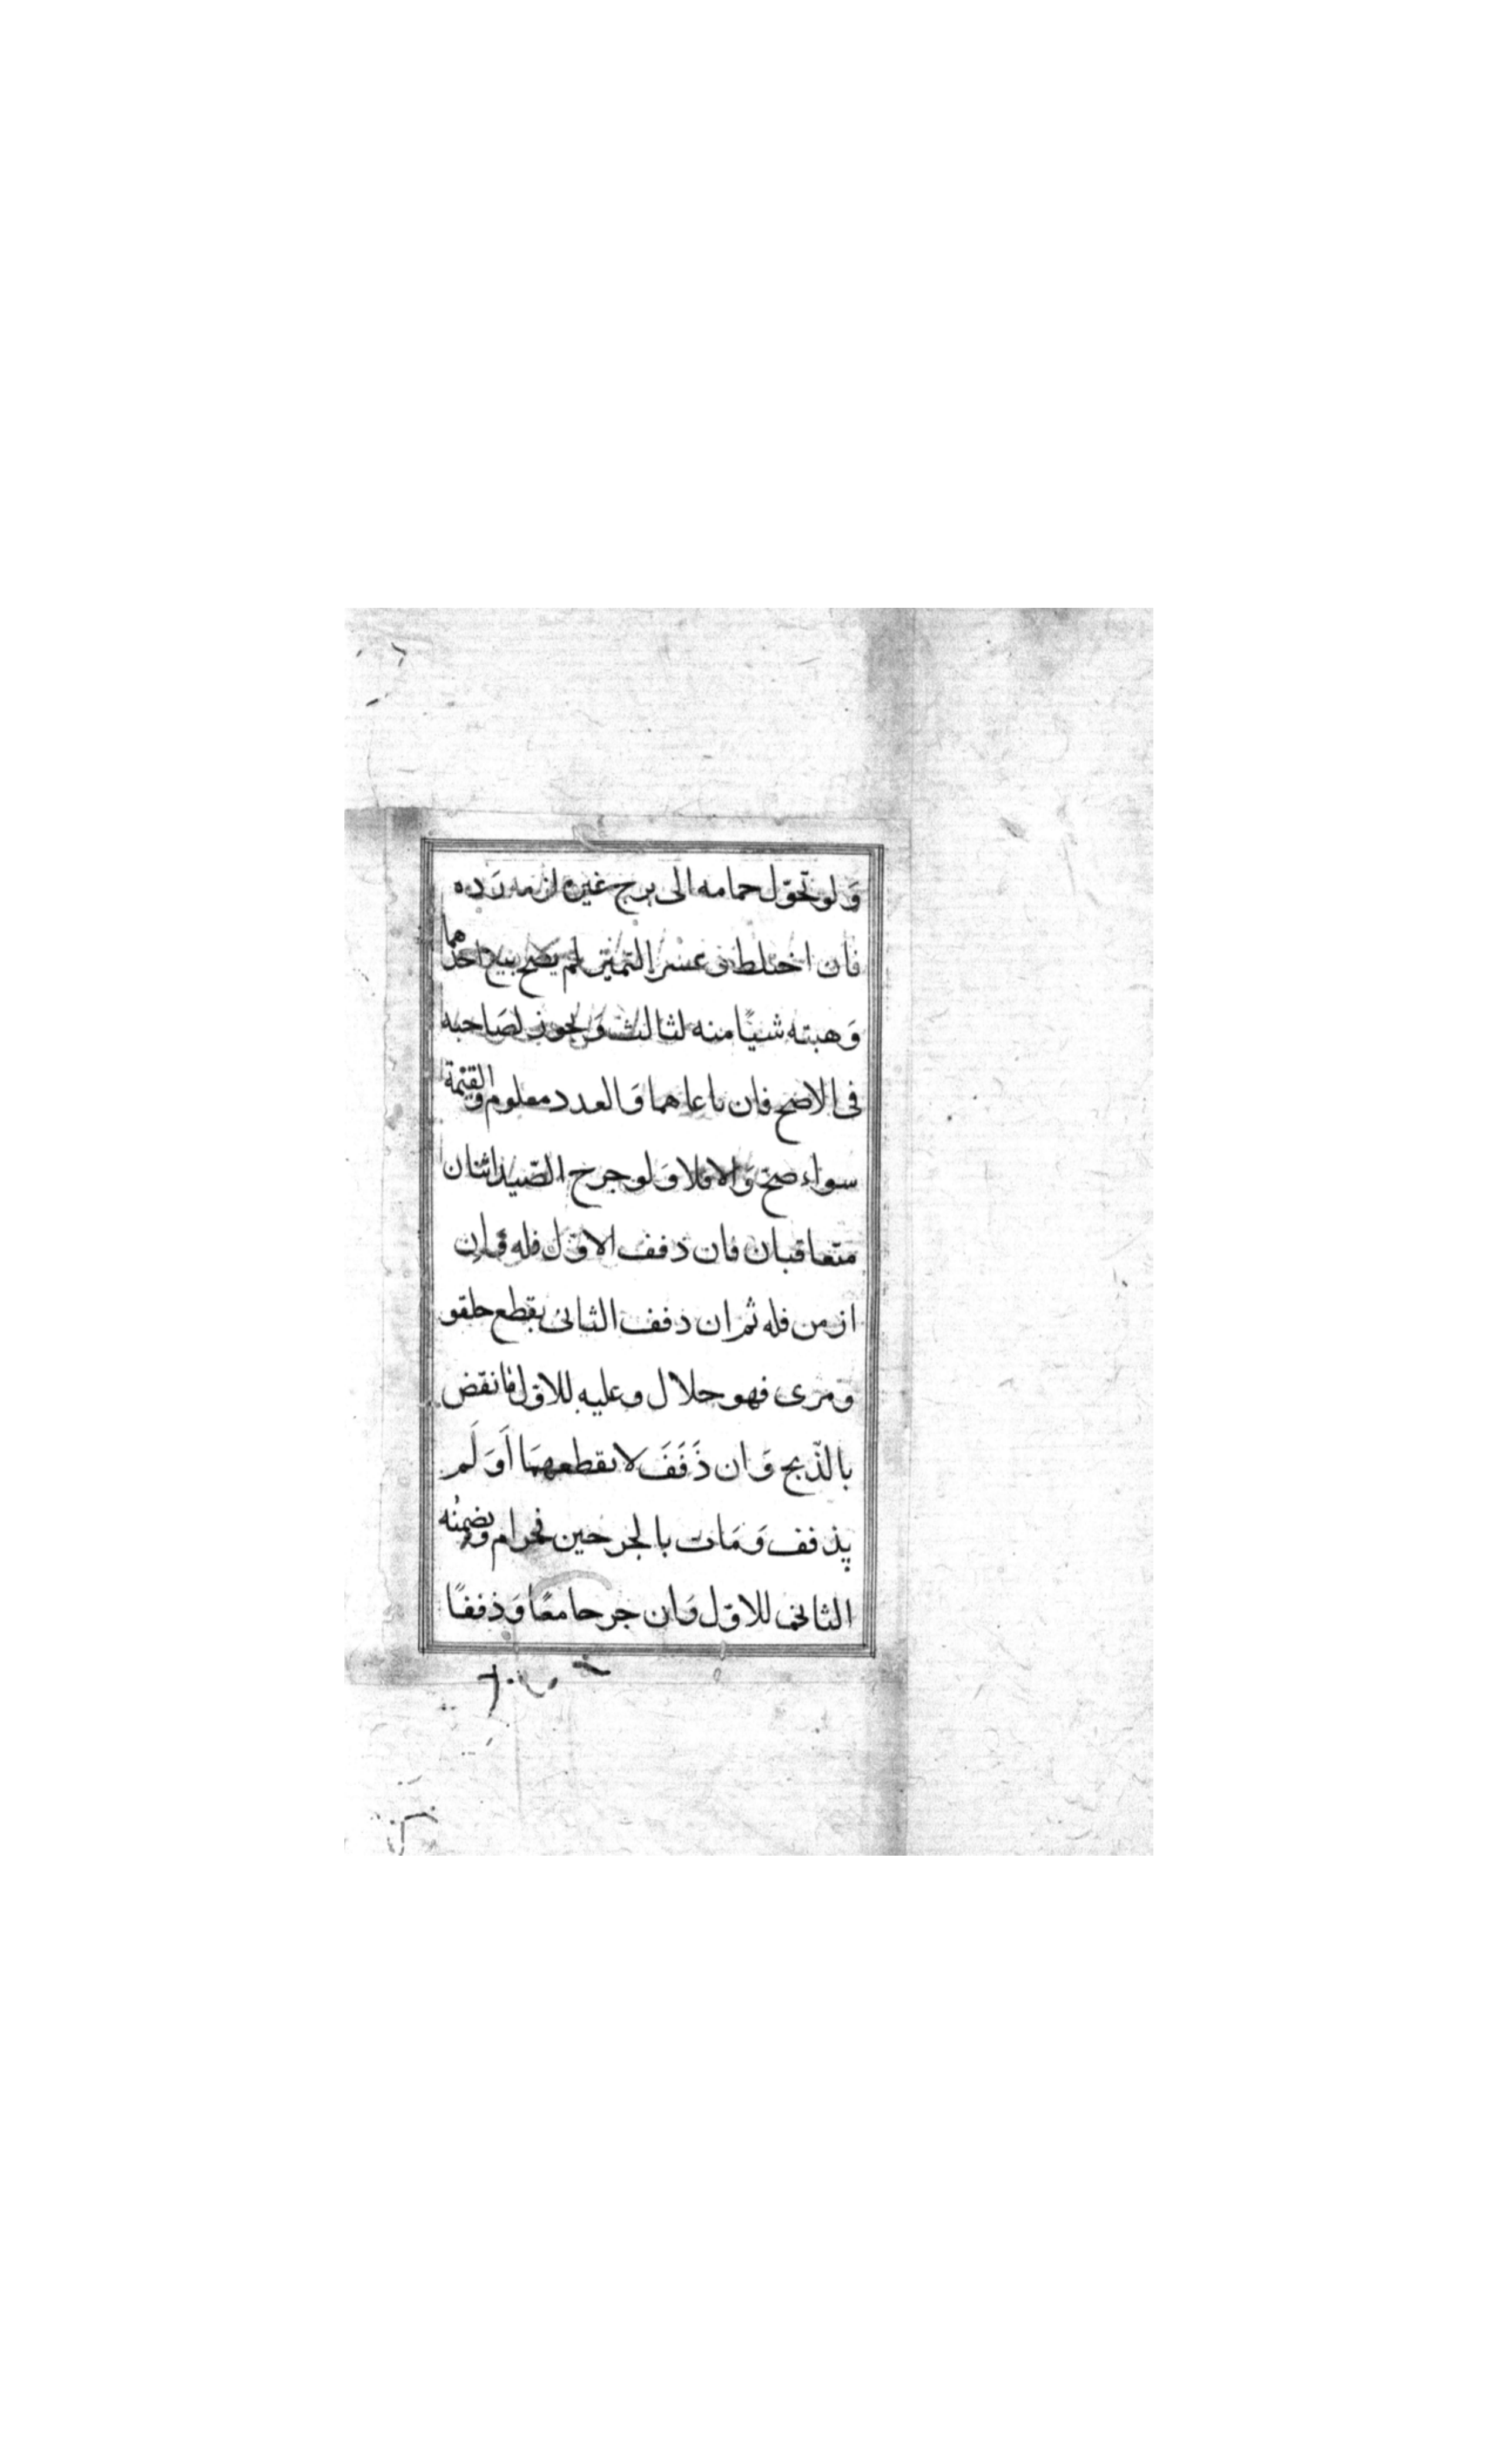 وَلو تحوّل حمامه الى برج غيره لزمه رَده
فان اختلط وعسر التميّز لم يصح بيع احدهما
وَهبته شيًا منه لثالث وَيجوز لصَاحبه
فى الاصح فان باعاهما وَالعدد معلوم والقيمة
سواء صحّ وَالا فلا وَلو جرح الصّيد اثنان
متعاقبان فان ذفف الاوّل فله وان
ازمن فله ثم ان ذفف الثانى بقطع حلقو
ومرى فهو حلال وعليه للاوّل مانقض
بالذّبح وَان ذَفَفَ لا بقطعهمَا اَوَ لَم
يذفف وَمَات بالجرحين فحرام ويضمنُه
الثانى للاوّل وَان جرحا معًا وَذففًا